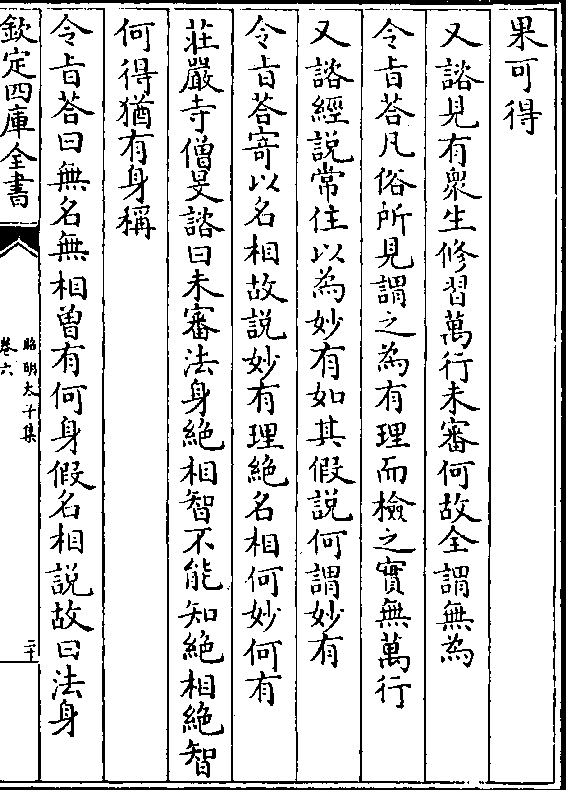 果可得
又諮見有衆生修習萬行未審何故全謂無為
令旨荅凡俗所見謂之為有理而檢之實無萬行
又諮經說常住以為妙有如其假說何謂妙有
令旨荅寄以名相故說妙有理絶名相何妙何有
莊嚴寺僧旻諮曰未審法身絶相智不能知絶相絶智
何得猶有身稱
令旨荅曰無名無相曽有何身假名相說故曰法身
欽定四庫全書
昭明太子集
卷六
二十